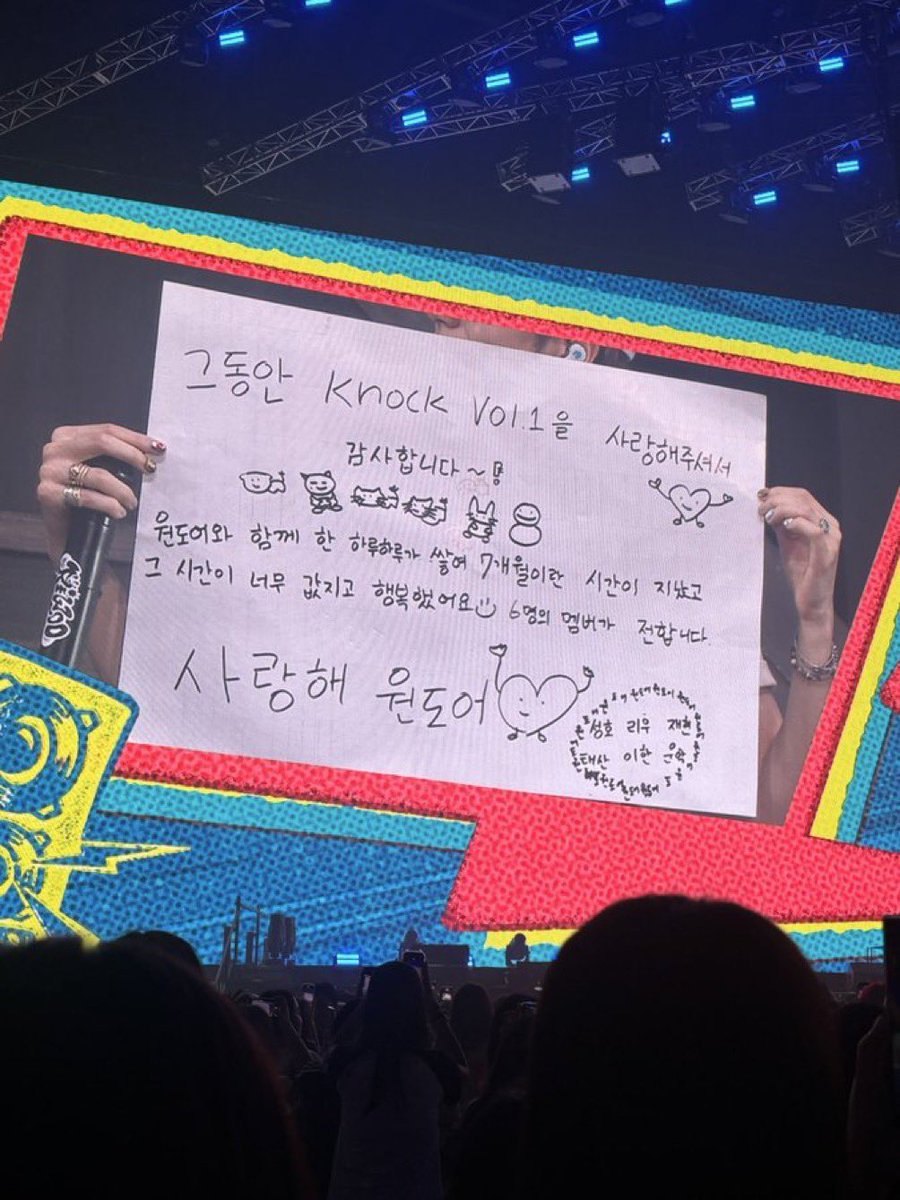 그동안 Knock Vol.1을 사랑해주셔서
감사합니다~!
원도어와 함께 한 하루하루가 쌓여 7개월이란 시간이 지났고
그 시간이 너무 값지고 행복했어요 6명의 멤버가 전합니다.
사랑해 원도어
성호 리우 재현
태산 이한 운학